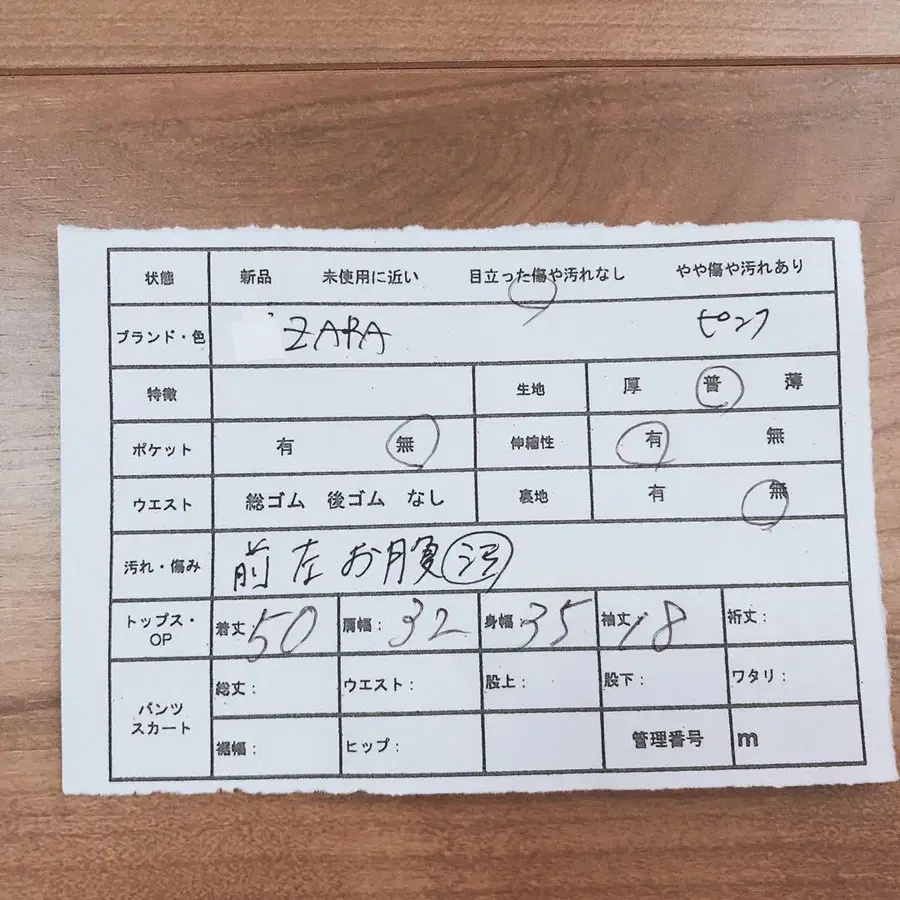 状態 新品 未使用に近い 目立った傷や汚れなし やや傷や汚れあり
ブランド・色 ZARA ピンク
特徴 生地 厚 普 薄
ポケット 有 無 伸縮性 有 無
ウエスト 総ゴム 後ゴム なし 裏地 有 無
汚れ・傷み 前左お腹 汚
トップス・OP 着丈 50 肩幅: 32 身幅: 35 袖丈 18 裄丈:
パンツ スカート 総丈: ウエスト: 股上: 股下: ワタリ:
裾幅: ヒップ: 管理番号 m